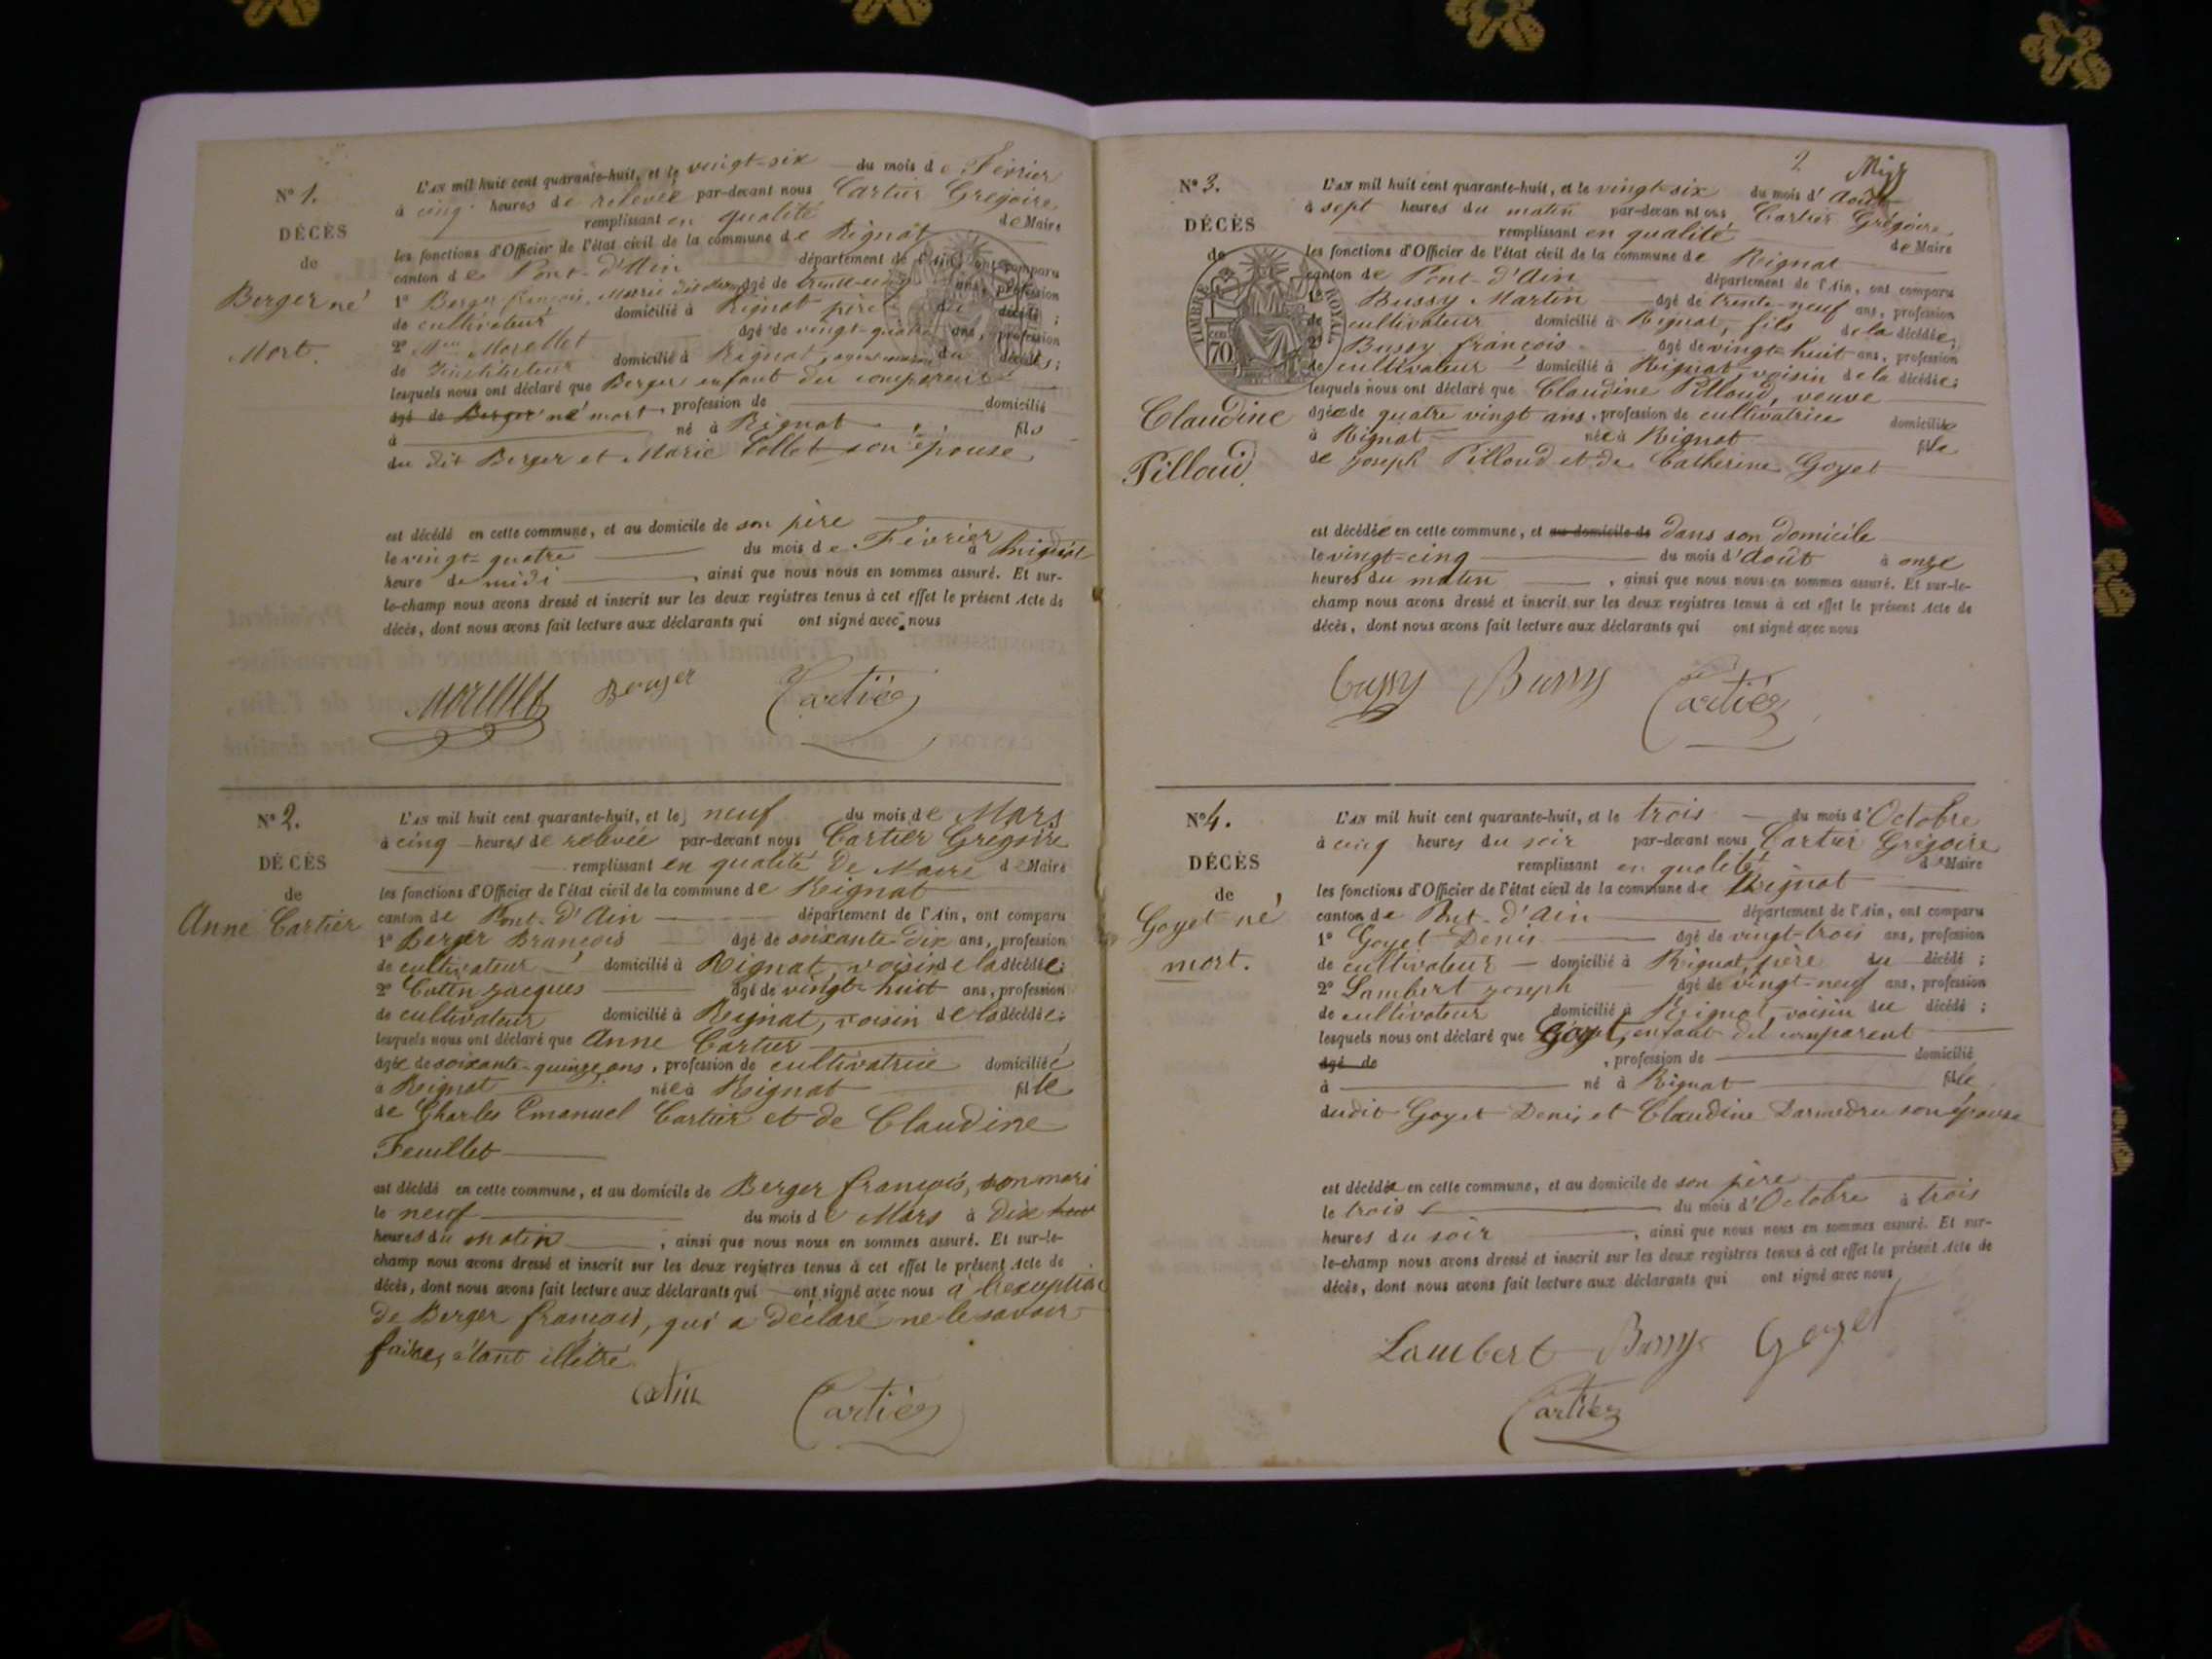 N° 1.
DÉCÈS
de
Berger né
Mort.
L'AN mil huit cent quarante-huit, et le vingt-six du mois de Février
à cinq heures de relevée par-devant nous Cartier Grégoire
remplissant en qualité de Maire
les fonctions d'Officier de l'état civil de la commune de Rignat
canton de Pont-d'Ain département de l'Ain, ont comparu
1° Berger françois, Marie agé de ans, profession
de cultivateur domicilié à Rignat père du décédé ;
2° Morellet agé de vingt-quatre ans, profession
de Instituteur domicilié à Rignat, du décédé ;
lesquels nous ont déclaré que Berger enfant du comparent
agé de Berger né mort, profession de domicilié
à né à Rignat fils
du dit Berger et Marie Collet son épouse
est décédé en cette commune, et au domicile de son père
le vingt-quatre du mois de Février à
heure de midi , ainsi que nous nous en sommes assuré. Et sur-
le-champ nous avons dressé et inscrit sur les deux registres tenus à cet effet le présent Acte de
décès, dont nous avons fait lecture aux déclarants qui ont signé avec nous
Morellet Berger Cartier
N° 2.
DÉCÈS
de
Anne Cartier
L'AN mil huit cent quarante-huit, et le neuf du mois de Mars
à cinq heures de relevée par-devant nous Cartier Grégoire
remplissant en qualité de Maire de Maire
les fonctions d'Officier de l'état civil de la commune de Rignat
canton de Pont-d'Ain département de l'Ain, ont comparu
1° Berger Brançois agé de soixante-dix ans, profession
de cultivateur domicilié à Rignat, voisin de la décédée;
2° Cotin jacques agé de vingt-huit ans, profession
de cultivateur domicilié à Rignat, voisin de la décédée;
lesquels nous ont déclaré que Anne Cartier
agée de soixante-quinze ans, profession de cultivatrice domiciliée
à Rignat née à Rignat fille
de Charles Emanuel Cartier et de Claudine
Feuillet
est décédé en cette commune, et au domicile de Berger françois, son mari
le neuf du mois de Mars à dix
heures du matin , ainsi que nous nous en sommes assuré. Et sur-le-
champ nous avons dressé et inscrit sur les deux registres tenus à cet effet le présent Acte de
décès, dont nous avons fait lecture aux déclarants qui ont signé avec nous à l'exception
de Berger françois, qui a déclaré ne le savoir
faire, étant illétré
Cotin Cartier
2
N° 3.
DÉCÈS
de
TIMBRE ROYAL
70
Claudine
Pilloud
L'AN mil huit cent quarante-huit, et le vingt-six du mois d'Août
à sept heures du matin par-devan nt ous Cartier Grégoire
remplissant en qualité de Maire
les fonctions d'Officier de l'état civil de la commune de Rignat
canton de Pont-d'Ain département de l'Ain, ont comparu
1° Bussy Martin agé de trente-neuf ans, profession
de cultivateur domicilié à Rignat, fils de la décédée;
2° Bussy françois agé de vingt-huit ans, profession
de cultivateur domicilié à Rignat, voisin de la décédée;
lesquels nous ont déclaré que Claudine Pilloud, veuve
agée de quatre vingt ans, profession de cultivatrice domiciliée
à Rignat née à Rignat fille
de joseph Pilloud et de Catherine Goyet
est décédée en cette commune, et au domicile de dans son domicile
le vingt-cinq du mois d'août à onze
heures du matin , ainsi que nous nous en sommes assuré. Et sur-le-
champ nous avons dressé et inscrit sur les deux registres tenus à cet effet le présent Acte de
décès, dont nous avons fait lecture aux déclarants qui ont signé avec nous
Bussy Bussy Cartier
N° 4.
DÉCÈS
de
Goyet né
mort.
L'AN mil huit cent quarante-huit, et le trois du mois d'Octobre
à cinq heures du soir par-devant nous Cartier Grégoire
remplissant en qualité de Maire
les fonctions d'Officier de l'état civil de la commune de Rignat
canton de Pont-d'Ain département de l'Ain, ont comparu
1° Goyet Denis agé de vingt-trois ans, profession
de cultivateur domicilié à Rignat, père du décédé ;
2° Lambert joseph agé de vingt-neuf ans, profession
de cultivateur domicilié à Rignat, voisin du décédé ;
lesquels nous ont déclaré que Goyet, enfant du comparent
agé de , profession de domicilié
à né à Rignat fille
dudit Goyet Denis et Claudine Darmedru son épouse
est décédée en cette commune, et au domicile de son père
le trois du mois d'Octobre à trois
heures du soir , ainsi que nous nous en sommes assuré. Et sur-
le-champ nous avons dressé et inscrit sur les deux registres tenus à cet effet le présent Acte de
décès, dont nous avons fait lecture aux déclarants qui ont signé avec nous
Lambert Bussy Goyet
Cartier